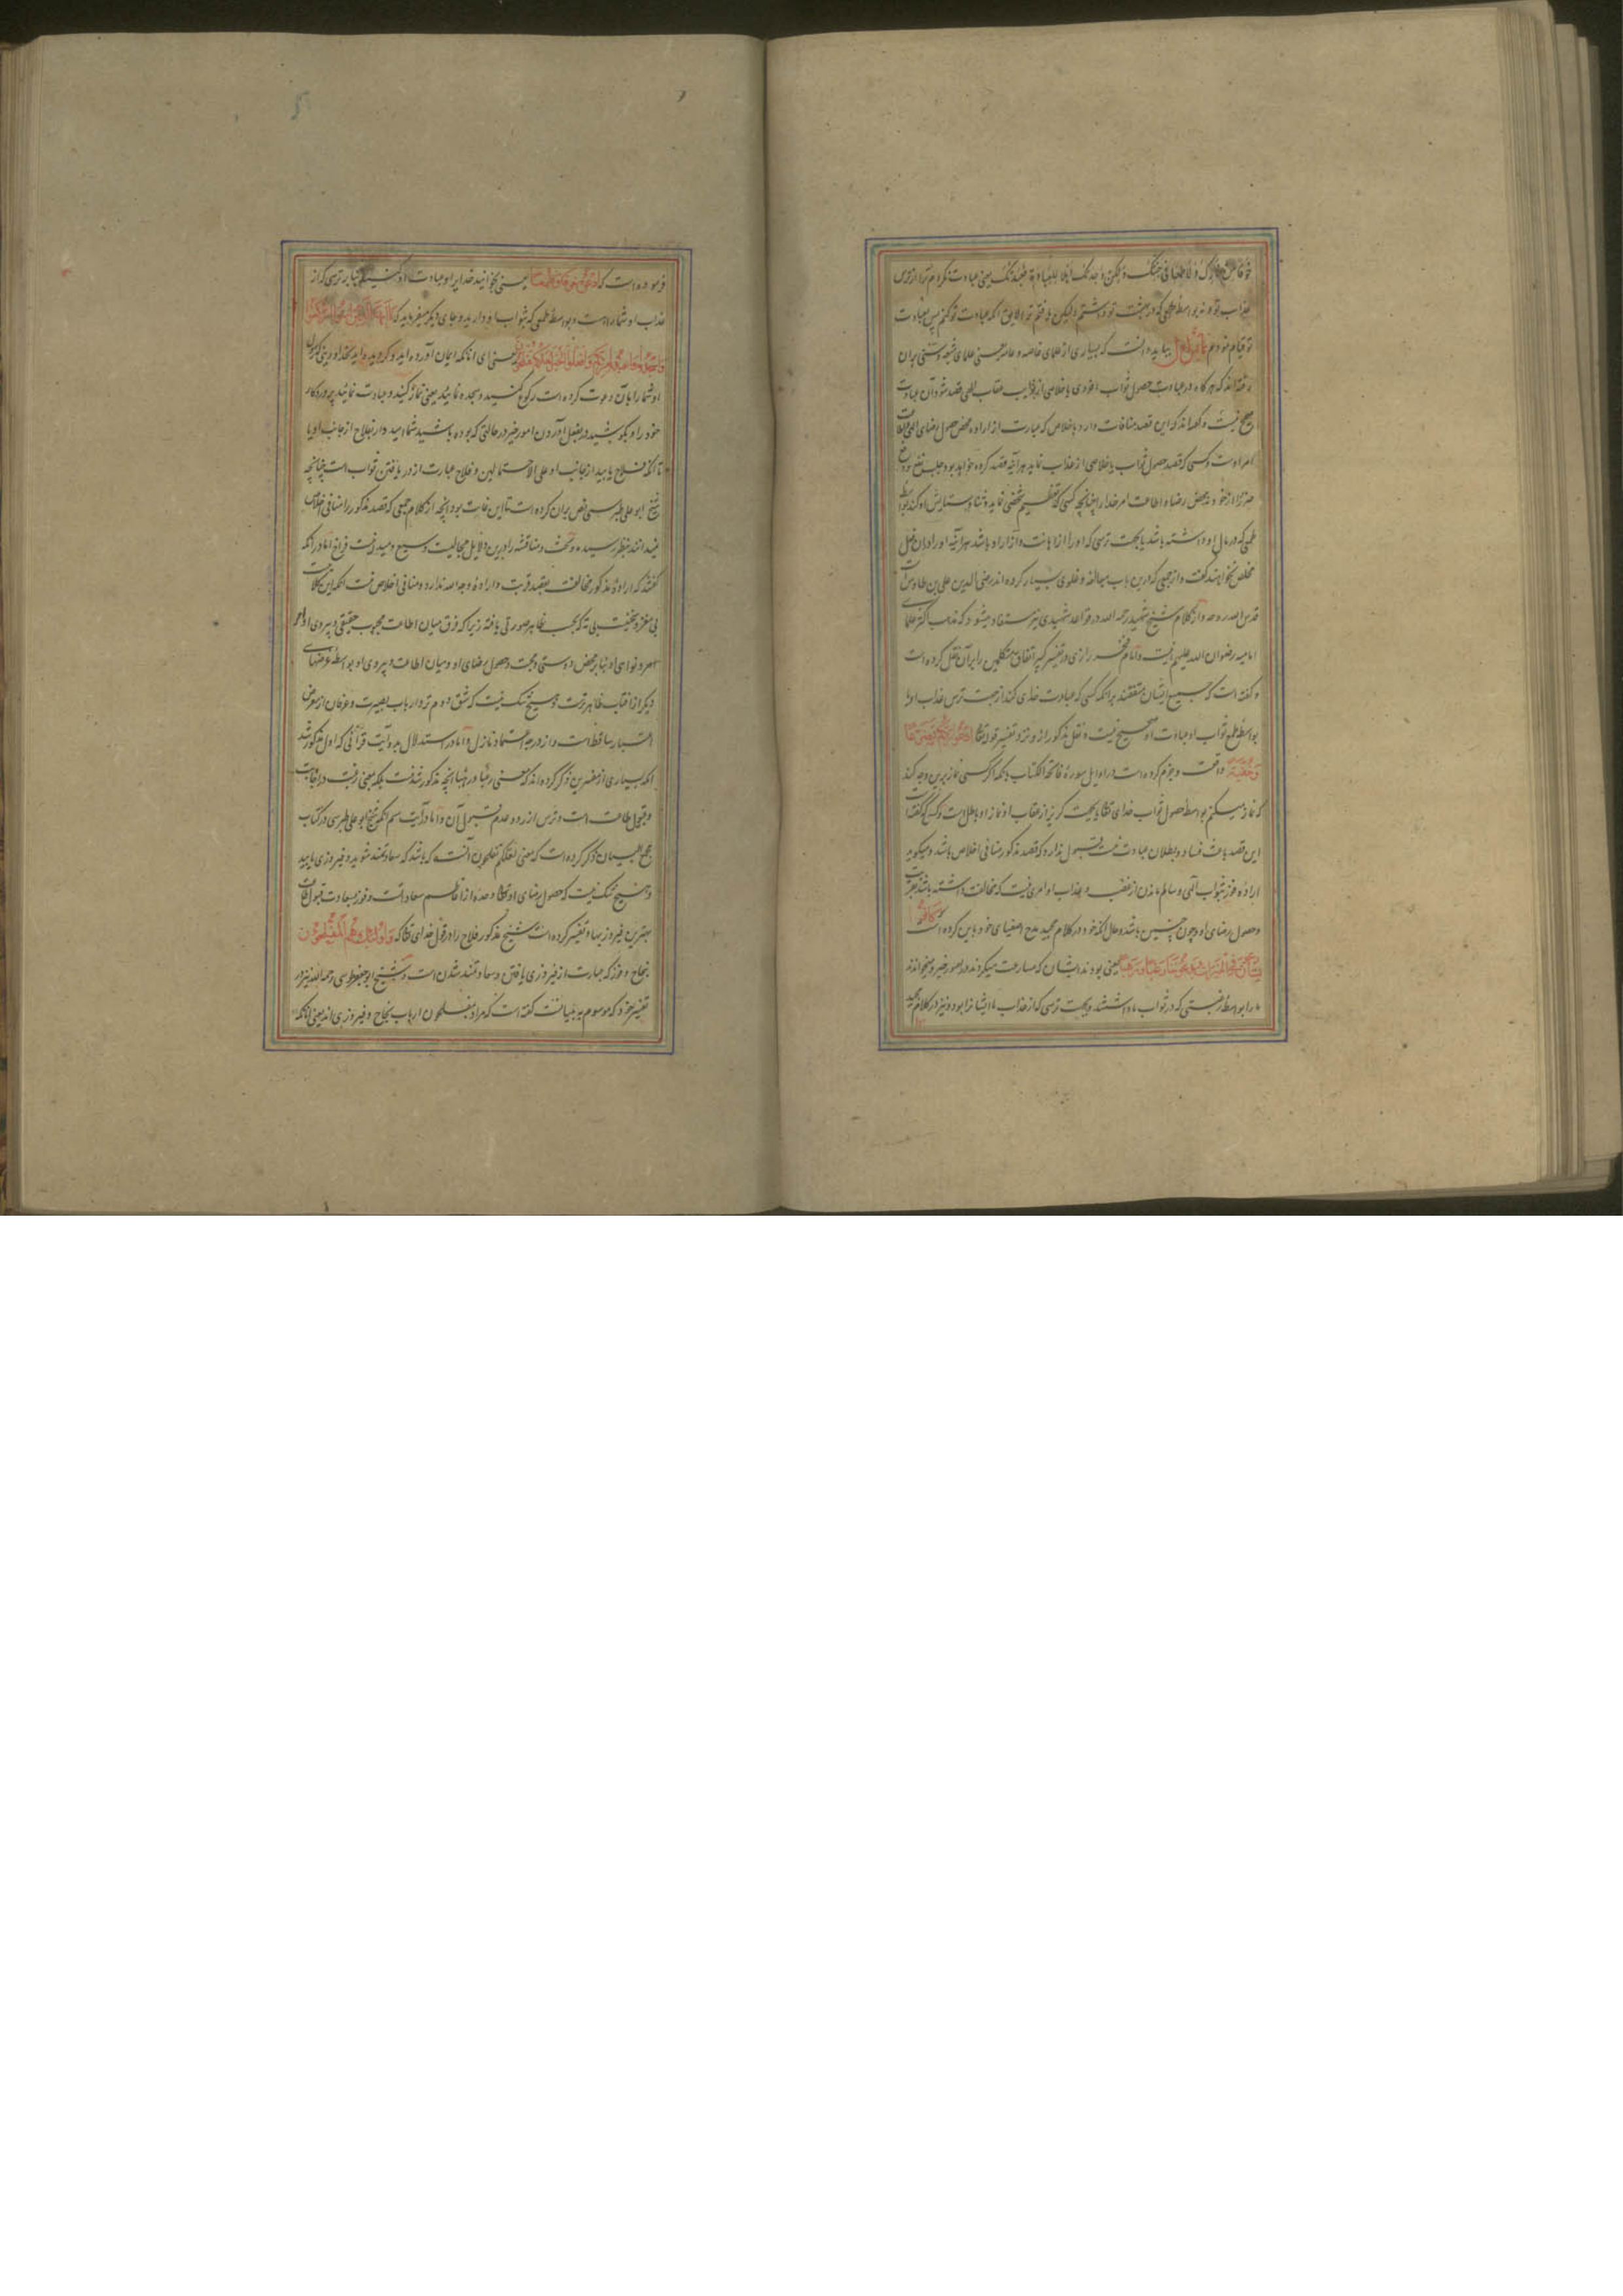 خوفا من نارک ولا طمعا فی جنتک ولکن وجدتک اهلا للعبادة فعبدتک یعنی عبادت نکردم ترا از ترس
عذاب تو و نه بواسطه طمعی که در بهشت تو داشتم ولیکن یافتم ترا لایق آنکه عبادت تو کنم پس بعبادت
تو قیام نمودم بباید دانست که بسیاری از علمای خاصه و عامه یعنی علمای شیعه و سنی بر آن
رفته اند که هرگاه در عبادت حصول ثواب اخروی یا خلاصی از عقاب الهی قصد شود آن عبادت
صحیح نیست و گفته اند که این قصد منافات دارد باخلاص که عبارت از اراده محض حصول رضای الهی و اطاعت
امر اوست و کسی که قصد حصول ثواب یا خلاصی از عذاب نماید هرآینه قصد کرده خواهد بود جلب نفع و دفع
ضرر را از خود نه محض رضا و اطاعت امر خدا را چنانچه کسی که تعظیم شخصی نماید و ثنا و ستایش او کند بواسطه
طمعی که در مال او داشته باشد یا بجهت ترسی که او را از اهانت و آزار او باشد هرآینه او را در آن فعل
مخلص نخواهند گفت و از جمعی که درین باب مبالغه و غلوی بسیار کرده اند رضی الدین علی بن طاوس است
قدس الله روحه و از کلام شیخ شهید رحمه الله در قواعد شهیدی نیز مستفاد میشود که مذهب اکثر علمای
امامیه رضوان الله علیهم اینست و امام فخر رازی در تفسیر کبیر اتفاق متکلمین را بر آن نقل کرده است
و گفته است که جمیع ایشان متفقند بر آنکه کسی که عبادت خدای کند از جهت ترس عذاب او یا
بواسطه طمع ثواب او عبادت او صحیح نیست و نقل مذکور را نزد تفسیر قوله تعالی ادعوا ربکم تضرعا
وخفیة و جزم کرده است در اوایل سوره فاتحة الکتاب بآنکه اگر کسی نماز برین وجه کند
که نماز میکنم بواسطه حصول ثواب خدای تعالی یا بجهت گریز از عقاب او نماز او باطل است و کسی که گفته است
این قصد باعث فساد و بطلان عبادت نیست قبول ندارد که قصد مذکور منافی اخلاص باشد و میگوید
اراده فوز بثواب الهی و سالم ماندن از غضب و عذاب او امری نیست که مخالفت داشته باشد بقربت
و حصول رضای او و چون چنین باشد و حال آنکه خود در کلام مجید مدح اصفیای خود باین کرده است که کانوا
یسارعون فی الخیرات ویدعوننا رغبا ورهبا یعنی بودند ایشان که مسارعت میکردند در امور خیر و میخواندند
ما را بواسطه رغبتی که در ثواب ما داشتند و بجهت ترسی که از عذاب ما ایشانرا بود و نیز در کلام مجید
فرموده است که وادعوه خوفا وطمعا یعنی بخوانید خدا را و عبادت او کنید بنا بر ترسی که از
عذاب او شما راست و بواسطه طمعی که بثواب او دارید و جای دیگر میفرماید که یا ایها الذین امنوا ارکعوا
واسجدوا واعبدوا ربکم وافعلوا الخیر لعلکم تفلحون یعنی ای آنانکه ایمان آورده اید و گرویده اید بخدا و دینی که رسول
او شما را بآن دعوت کرده است رکوع کنید و سجده نمایید یعنی نماز کنید و عبادت نمایید پروردگار
خود را و بکوشید در بفعل آوردن امور خیر در حالتی که بوده باشید شما امیدوار بفلاح از جانب او یا
تا آنکه فلاح یابید از جانب او علی الاحتمالین و فلاح عبارت از دریافتن ثواب است چنانچه
شیخ ابو علی طبرسی نص بر آن کرده است تا این غایت بود آنچه از کلام جمعی که قصد مذکور را منافی اخلاص
نمیدانند بنظر رسیده و بحث و مناقشه را درین دلایل مجالیست وسیع و میدانیست فراخ اما در آنکه
گفتند که اراده مذکور مخالفت بقصد قربت و اراده وجه الله ندارد و منافی اخلاص نیست آنکه این کلامیست
بی مغز و بحثیست بی ته که بحسب ظاهر صورتی یافته زیرا که فرق میان اطاعت محبوب حقیقی و پیروی اوامر
و نواهی او بنا بر محض دوستی و محبت و حصول رضای او و میان اطاعت و پیروی او بواسطه غرضهای
دیگر از آفتاب ظاهرترست و هیچ شک نیست که شق دوم نزد ارباب بصیرت و عرفان از معرض
اعتبار ساقط است و از درجه اعتماد نازل و اما در استدلال بدو آیت قرآنی که اول مذکور شد
آنکه بسیاری از مفسرین ذکر کرده اند که معنی رغبا و رهبا آنچه مذکور شد نیست بلکه بمعنی رغبت در اجابت
و قبول طاعت است و ترس از رد و عدم قبول آن و اما در آیت سیم آنکه شیخ ابو علی طبرسی در کتاب
مجمع البیان ذکر کرده است که معنی لعلکم تفلحون آنست که باشد که سعادتمند شوید و فیروزی یابید
و هیچ شک نیست که حصول رضای او تعالی وحده از اعظم سعادات است و فوز بسعادت قبول طاعت
بهترین فیروزیها و تفسیر کرده است شیخ مذکور فلاح را در قول خدای تعالی که واولئک هم المفلحون
بنجاح و فوز که عبارت از فیروزی یافتن و سعادتمند شدن است و شیخ ابو جعفر طوسی رحمه الله نیز در
تفسیر خود که موسوم به تبیانست گفته است که مراد بمفلحون ارباب نجاح و فیروزی اند یعنی آنانکه